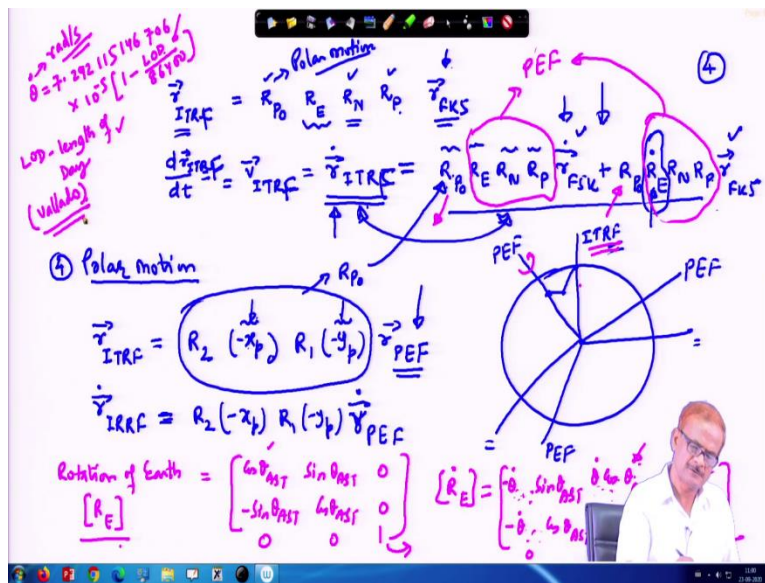 rad/s
θ̇ = 7.292115146706
× 10⁻⁵ [1 − LOD/86400]
LOD - length of
Day
(Vallado)
Polar motion
r⃗ ITRF = R_Po R_E R_N R_P r⃗ FK5
PEF
④
dr⃗ITRF/dt = v⃗ ITRF = ṙ⃗ ITRF = R_Po R_E R_N R_P ṙ⃗ FSK + R_Po Ṙ_E R_N R_P r⃗ FK5
④ Polar motion
R_Po
r⃗ ITRF = R₂ (-x_p) R₁ (-y_p) r⃗ PEF
ṙ⃗ IRRF = R₂ (-x_p) R₁ (-y_p) ṙ⃗ PEF
ITRF
PEF
PEF
PEF
Rotation of Earth = [cos θ_AST sin θ_AST 0
[R_E] -sin θ_AST cos θ_AST 0
0 0 1]
[Ṙ_E] = [-θ̇ sin θ_AST θ̇ cos θ
-θ̇ cos θ_AS
0
11:00
23-09-2020